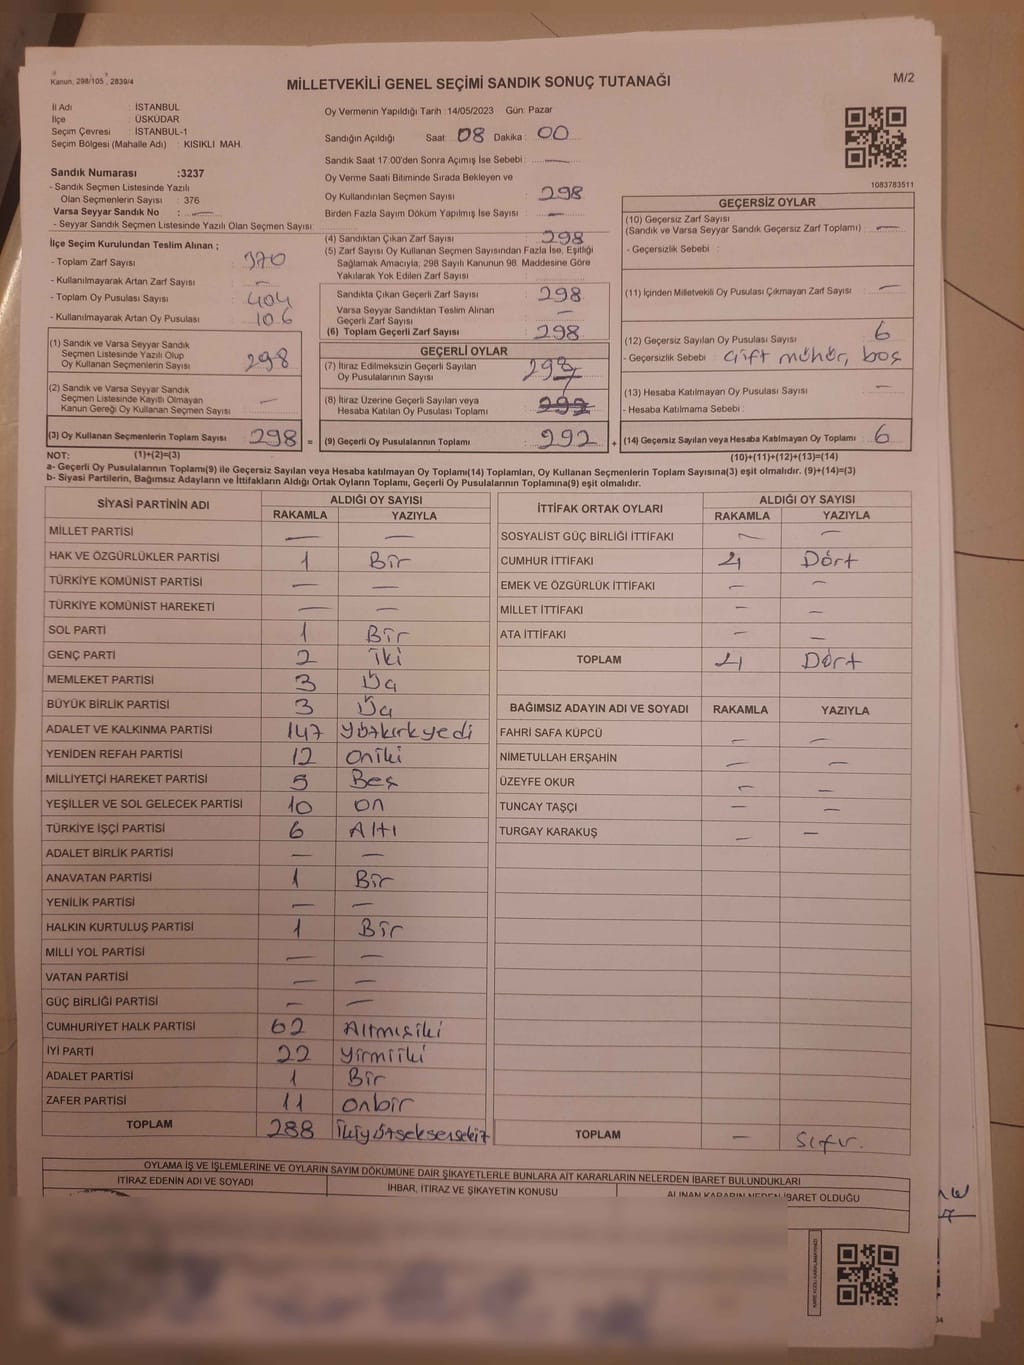 Kanun, 298/105 , 2839/4
MİLLETVEKİLİ GENEL SEÇİMİ SANDIK SONUÇ TUTANAĞI
M/2
İl Adı : İSTANBUL
İlçe : ÜSKÜDAR
Seçim Çevresi : İSTANBUL-1
Seçim Bölgesi (Mahalle Adı) : KISIKLI MAH.
Oy Vermenin Yapıldığı Tarih :14/05/2023 Gün: Pazar
Sandığın Açıldığı Saat: 08 Dakika : 00
Sandık Saat 17:00'den Sonra Açımış İse Sebebi : —
Oy Verme Saati Bitiminde Sırada Bekleyen ve
Oy Kullandırılan Seçmen Sayısı : 298
Birden Fazla Sayım Döküm Yapılmış İse Sayısı : —
Sandık Numarası :3237
- Sandık Seçmen Listesinde Yazılı
Olan Seçmenlerin Sayısı : 376
Varsa Seyyar Sandık No : —
- Seyyar Sandık Seçmen Listesinde Yazılı Olan Seçmen Sayısı:
İlçe Seçim Kurulundan Teslim Alınan ;
- Toplam Zarf Sayısı : 370
- Kullanılmayarak Artan Zarf Sayısı : —
- Toplam Oy Pusulası Sayısı : 404
- Kullanılmayarak Artan Oy Pusulası : 106
(1) Sandık ve Varsa Seyyar Sandık
Seçmen Listesinde Yazılı Olup
Oy Kullanan Seçmenlerin Sayısı : 298
(2) Sandık ve Varsa Seyyar Sandık
Seçmen Listesinde Kayıtlı Olmayan
Kanun Gereği Oy Kullanan Seçmen Sayısı : —
(3) Oy Kullanan Seçmenlerin Toplam Sayısı : 298 =
(1)+(2)=(3)
(4) Sandıktan Çıkan Zarf Sayısı : 298
(5) Zarf Sayısı Oy Kullanan Seçmen Sayısından Fazla İse, Eşitliği
Sağlamak Amacıyla, 298 Sayılı Kanunun 98. Maddesine Göre
Yakılarak Yok Edilen Zarf Sayısı :
Sandıkta Çıkan Geçerli Zarf Sayısı : 298
Varsa Seyyar Sandıktan Teslim Alınan
Geçerli Zarf Sayısı : —
(6) Toplam Geçerli Zarf Sayısı : 298
GEÇERLİ OYLAR
(7) İtiraz Edilmeksizin Geçerli Sayılan
Oy Pusulalarının Sayısı :
(8) İtiraz Üzerine Geçerli Sayılan veya
Hesaba Katılan Oy Pusulası Toplamı : 292
(9) Geçerli Oy Pusulalarının Toplamı : 292 +
1083783511
GEÇERSİZ OYLAR
(10) Geçersiz Zarf Sayısı
(Sandık ve Varsa Seyyar Sandık Geçersiz Zarf Toplamı) : —
- Geçersizlik Sebebi :
(11) İçinden Milletvekili Oy Pusulası Çıkmayan Zarf Sayısı : —
(12) Geçersiz Sayılan Oy Pusulası Sayısı : 6
- Geçersizlik Sebebi : Çift mühür, boş
(13) Hesaba Katılmayan Oy Pusulası Sayısı : —
- Hesaba Katılmama Sebebi :
(14) Geçersiz Sayılan veya Hesaba Katılmayan Oy Toplamı : 6
(10)+(11)+(12)+(13)=(14)
NOT:
a- Geçerli Oy Pusulalarının Toplamı(9) ile Geçersiz Sayılan veya Hesaba katılmayan Oy Toplamı(14) Toplamları, Oy Kullanan Seçmenlerin Toplam Sayısına(3) eşit olmalıdır. (9)+(14)=(3)
b- Siyasi Partilerin, Bağımsız Adayların ve İttifakların Aldığı Ortak Oyların Toplamı, Geçerli Oy Pusulalarının Toplamına(9) eşit olmalıdır.
SİYASİ PARTİNİN ADI ALDIĞI OY SAYISI
RAKAMLA YAZIYLA
MİLLET PARTİSİ — —
HAK VE ÖZGÜRLÜKLER PARTİSİ 1 Bir
TÜRKİYE KOMÜNİST PARTİSİ — —
TÜRKİYE KOMÜNİST HAREKETİ — —
SOL PARTİ 1 Bir
GENÇ PARTİ 2 İki
MEMLEKET PARTİSİ 3 Üç
BÜYÜK BİRLİK PARTİSİ 3 Üç
ADALET VE KALKINMA PARTİSİ 147 Yüzkırkyedi
YENİDEN REFAH PARTİSİ 12 Oniki
MİLLİYETÇİ HAREKET PARTİSİ 5 Beş
YEŞİLLER VE SOL GELECEK PARTİSİ 10 On
TÜRKİYE İŞÇİ PARTİSİ 6 Altı
ADALET BİRLİK PARTİSİ — —
ANAVATAN PARTİSİ 1 Bir
YENİLİK PARTİSİ — —
HALKIN KURTULUŞ PARTİSİ 1 Bir
MİLLİ YOL PARTİSİ — —
VATAN PARTİSİ — —
GÜÇ BİRLİĞİ PARTİSİ — —
CUMHURİYET HALK PARTİSİ 62 Altmışiki
İYİ PARTİ 22 Yirmiiki
ADALET PARTİSİ 1 Bir
ZAFER PARTİSİ 11 Onbir
TOPLAM 288 İkiyüzseksensekiz
İTTİFAK ORTAK OYLARI ALDIĞI OY SAYISI
RAKAMLA YAZIYLA
SOSYALİST GÜÇ BİRLİĞİ İTTİFAKI — —
CUMHUR İTTİFAKI 4 Dört
EMEK VE ÖZGÜRLÜK İTTİFAKI — —
MİLLET İTTİFAKI — —
ATA İTTİFAKI — —
TOPLAM 4 Dört
BAĞIMSIZ ADAYIN ADI VE SOYADI RAKAMLA YAZIYLA
FAHRİ SAFA KÜPCÜ — —
NİMETULLAH ERŞAHİN — —
ÜZEYFE OKUR — —
TUNCAY TAŞÇI — —
TURGAY KARAKUŞ — —
TOPLAM — Sıfır.
OYLAMA İŞ VE İŞLEMLERİNE VE OYLARIN SAYIM DÖKÜMÜNE DAİR ŞİKAYETLERLE BUNLARA AİT KARARLARIN NELERDEN İBARET BULUNDUKLARI
İTİRAZ EDENİN ADI VE SOYADI İHBAR, İTİRAZ VE ŞİKAYETİN KONUSU ALINAN KARARIN NEDEN İBARET OLDUĞU